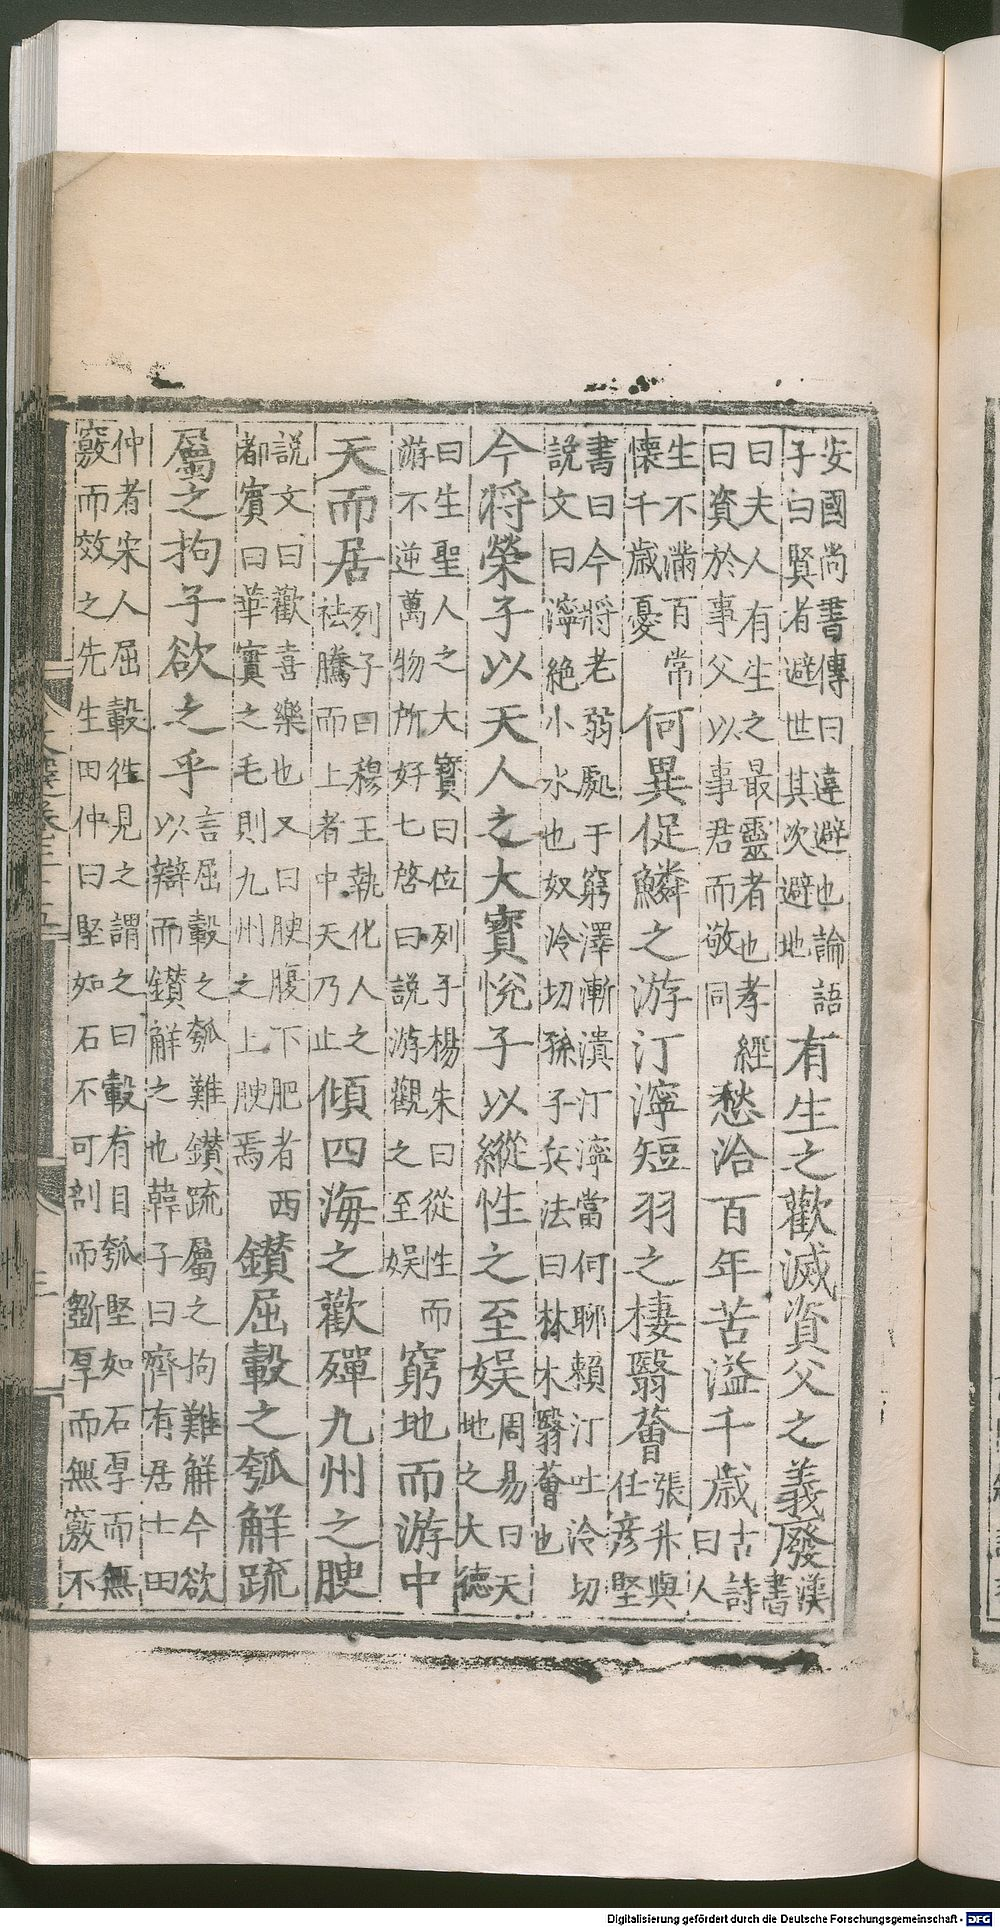 安國尚書傳曰違避也論語
子曰賢者避世其次避地
有生之歡滅資父之義廢
漢
書
曰夫人有生之最靈者也孝經
曰資於事父以事君而敬同
愁洽百年苦溢千歳
古詩
曰人
生不滿百常
懷千歳憂
何異促鱗之游汀濘短羽之棲翳薈
張升與
任彦堅
書曰今將老弱處于窮澤漸漬汀濘當何聊賴汀吐泠切
說文曰濘絶小水也奴泠切孫子兵法曰林木翳薈也
今將榮子以天人之大寶悅子以縱性之至娱
周易曰天
地之大德
曰生聖人之大寶曰位列子楊朱曰從性而
游不逆萬物所好七啓曰說游觀之至娱
窮地而游中
天而居
列子曰穆王執化人之
祛騰而上者中天乃止
傾四海之歡殫九州之腴
說文曰歡喜樂也又曰腴腹下肥者西
都賓曰華實之毛則九州之上腴焉
鑚屈轂之瓠解疏
屬之拘子欲之乎
言屈轂之瓠難鑚疏屬之拘難解今欲
以辯而鑚解之也韓子曰齊有居士田
仲者宋人屈轂徃見之謂之曰轂有目瓠堅如石厚而無
竅而效之先生田仲曰堅如石不可剖而斲厚而無竅不